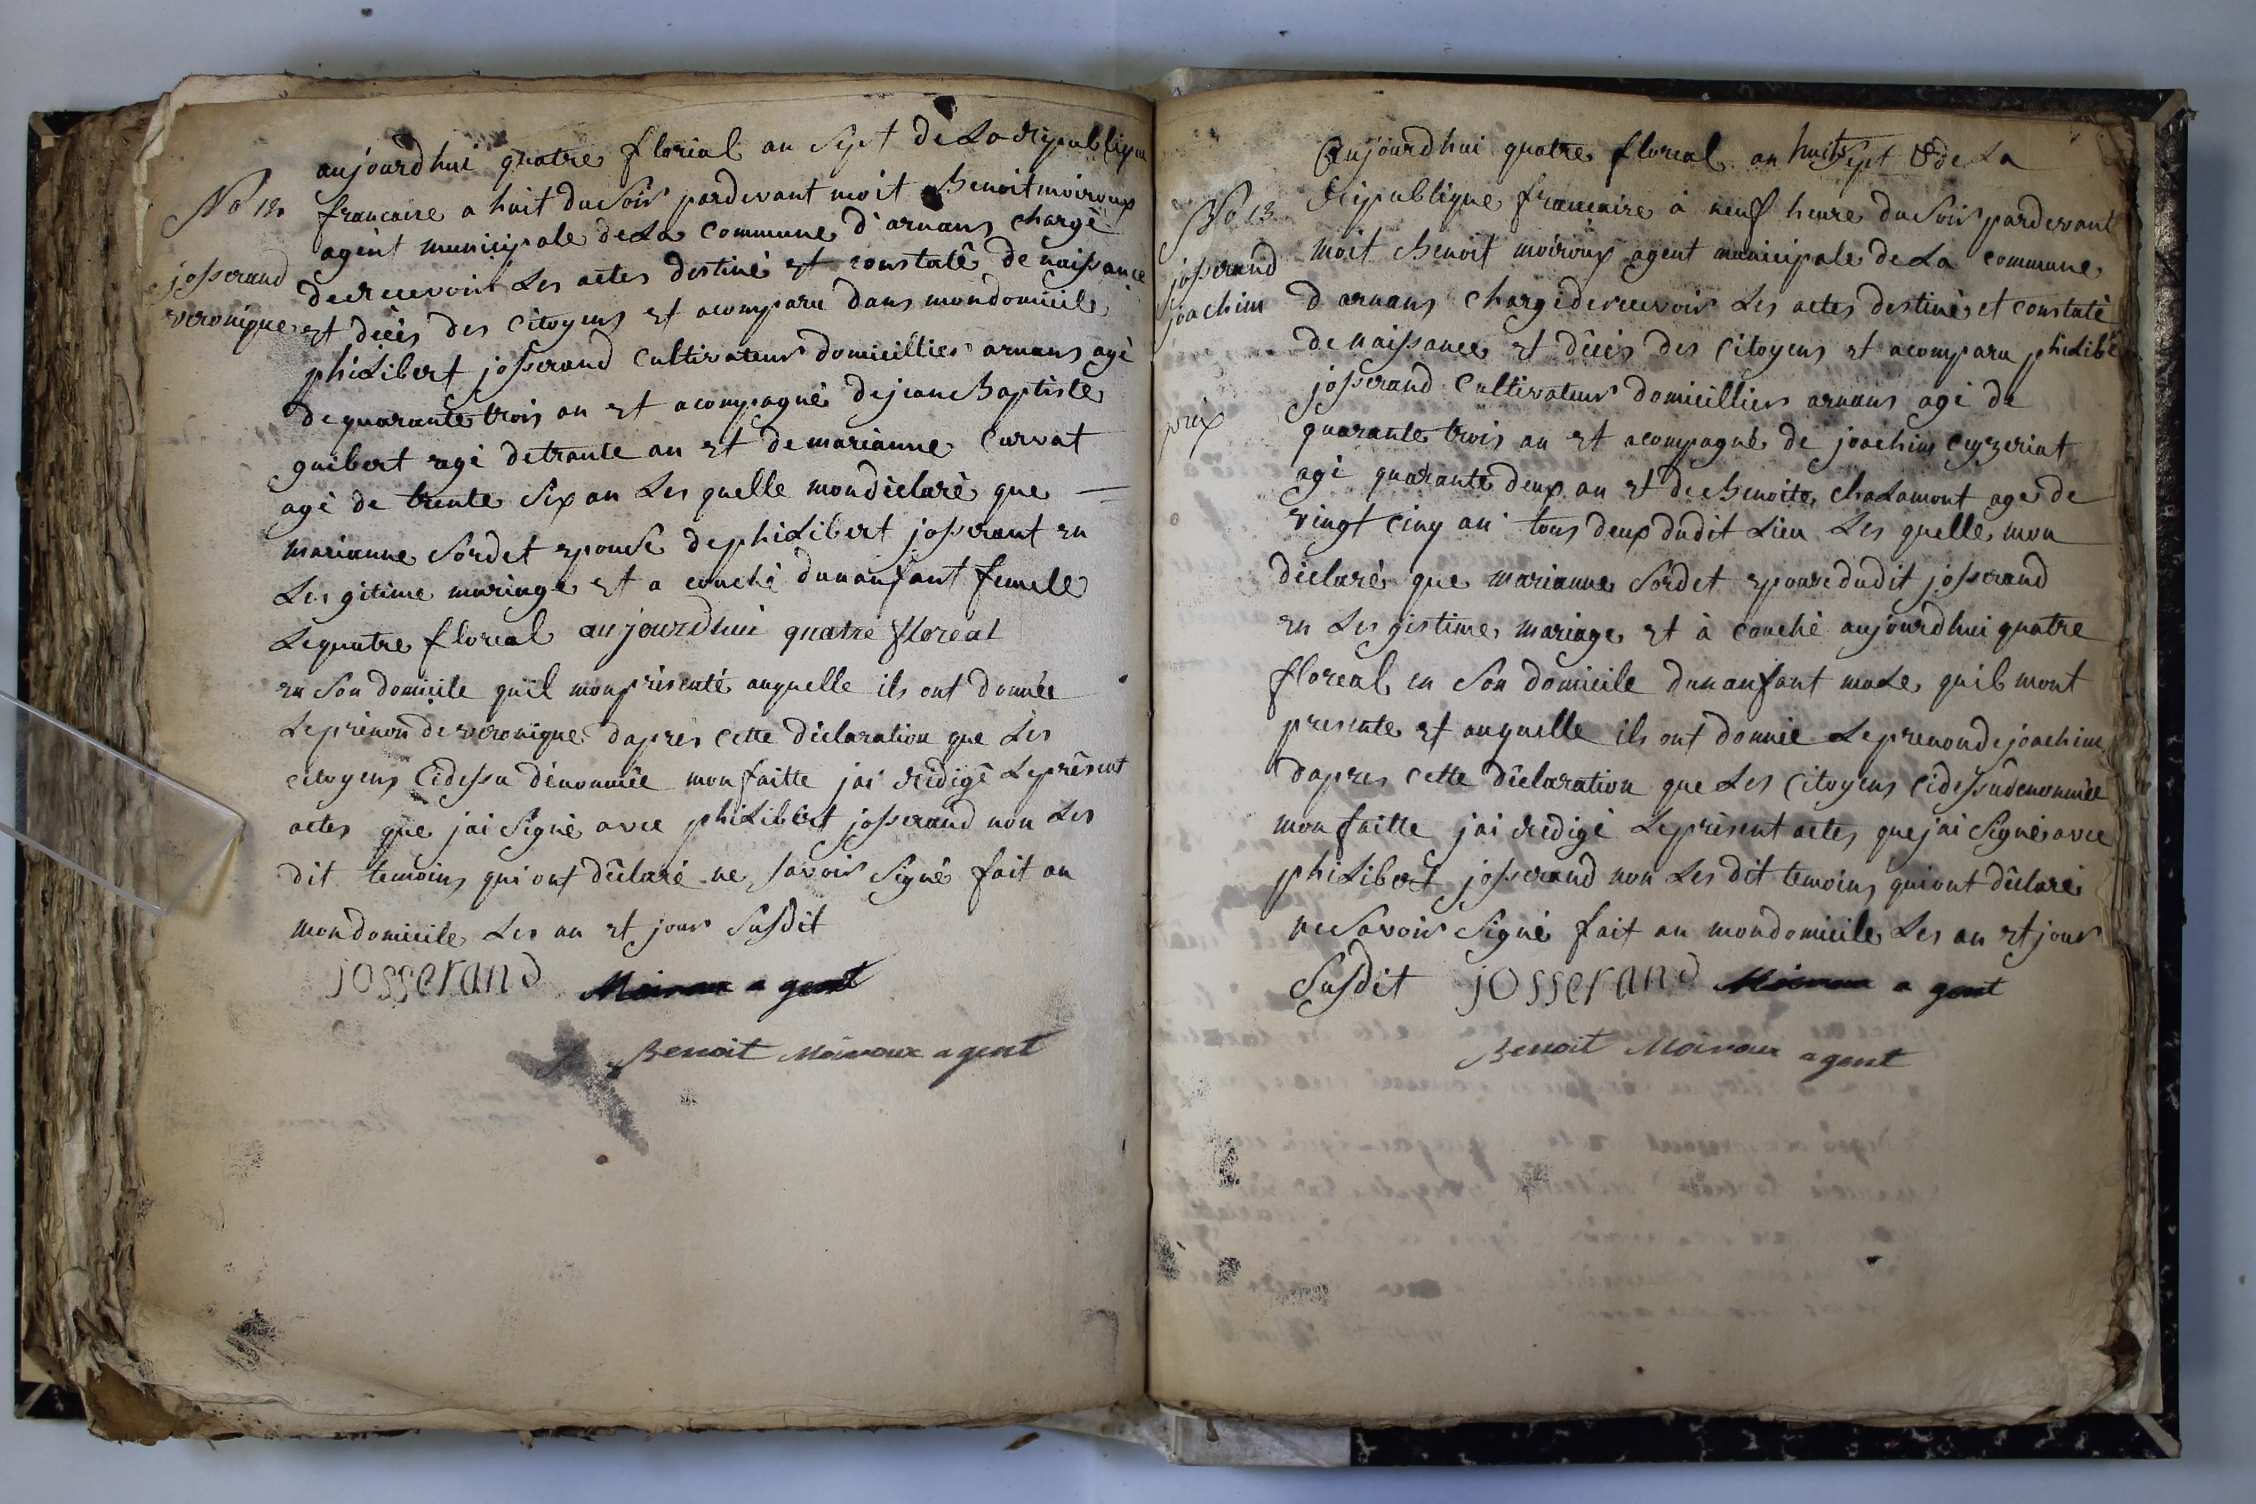 aujourdhui quatre florial an Sept de La republique
No 12 francaise a huit du Soir pardevant moit Benoit moiroux
agent municipale de La Commune d'arnans chargé
josserand
veronique
de recevoir Les actes destiné et constaté de naissance
et décès des Citoyens et acomparu dans mon domicile
phiLibert josserand Cultivateur domicillier arnans agé
de quarante trois an et acompagné de jean Baptiste
guibert agé de trante an et de marianne Curvat
agé de trente Six an Les quelle mon déclaré que —
marianne Sordet epouse de phiLibert josserant en
Les gitime mariage et a couché dun anfant femele
Le quatre floreal aujourdhui quatre floreal
en Son domicile quil mon présenté auquelle ils ont donnée
Le prénon de veronique dapres Cette déclaration que Les
citoyens Cidessu dénonmée mon faitte jai rédigé Le présent
actes que jai Signé avec phiLibert josserand non Les
dit temoins qui ont déclaré ne savoir Signé fait an
mon domicile Les an et jour Susdit
josserand Moiroux agent
Benoit Moiroux agent
aujourdhui quatre floreal an huit Sept de La
No 13 Republique francaire à neuf heure du Soir pardevant
josserand
joachim
moit Benoit moiroux agent municipale de La commune
d arnans Chargé de recevoir Les actes destiné et constaté
de naissance et décès des Citoyens et acomparu phiLibe
josserand Cultivateur domicillier arnans agé de
quarante trois an et acompagné de joachim Ceyzeriat
agé quarante deux an et de Benoite ChaLamont age de
vingt Cinq an tous deux dudit Lieu Les quelle mon
déclaré que marianne Sordet epouse dudit josserand
en Les gistime mariage et à couché aujourdhui quatre
floreal en Son domicile dun anfant maLe quil mont
presente et auquelle ils ont donnie Le prenon de joachim
dapres Cette déclaration que Les Citoyens Cidessu denonmée
mon faitte jai redigé Le présent actes que jai Signé avec
phiLibert josserand non Les dit temoins qui ont déclaré
ne Savoir Signé fait an mon domicile Les an et jour
Susdit josserand Moiroux agent
Benoit Moiroux agent